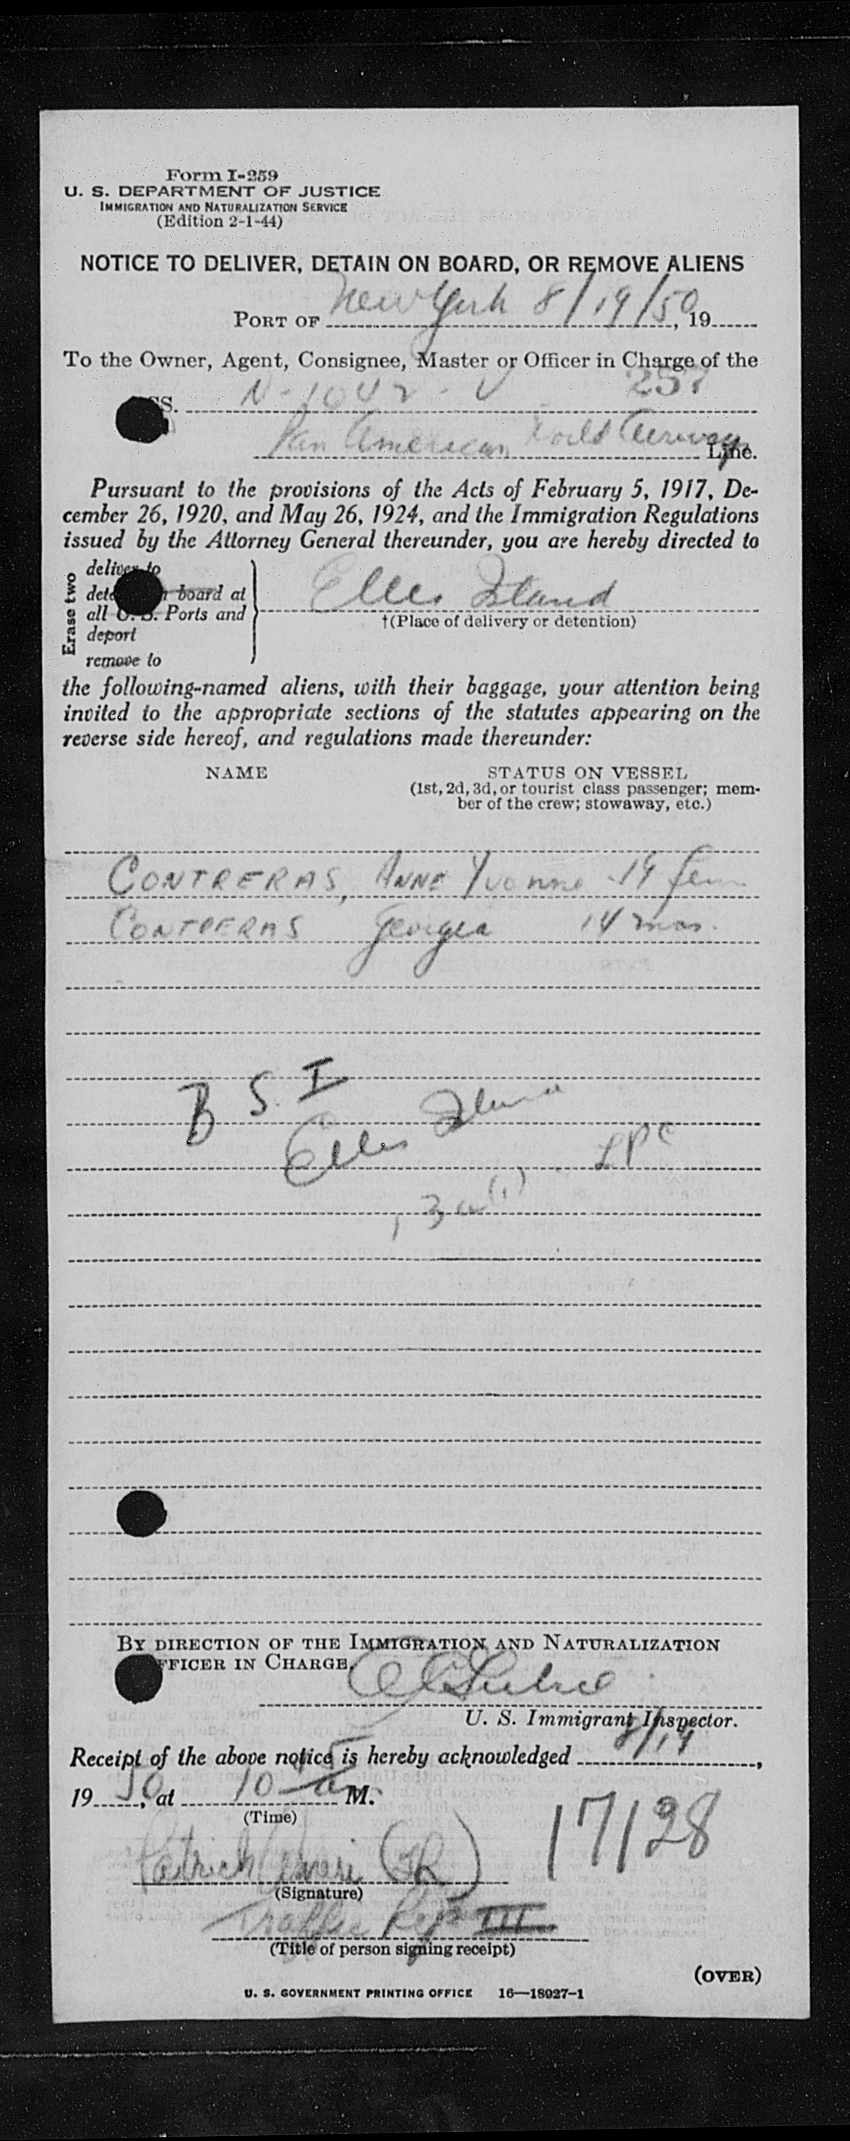 Form I-259
U. S. DEPARTMENT OF JUSTICE
IMMIGRATION AND NATURALIZATION SERVICE
(Edition 2-1-44)
NOTICE TO DELIVER, DETAIN ON BOARD, OR REMOVE ALIENS
PORT OF New York 8/19/50, 19
To the Owner, Agent, Consignee, Master or Officer in Charge of the
SS. N-1042-V 257
Pan American World Airways Line.
Pursuant to the provisions of the Acts of February 5, 1917, De-
cember 26, 1920, and May 26, 1924, and the Immigration Regulations
issued by the Attorney General thereunder, you are hereby directed to
Erase two
deliver to
board at
all U. S. Ports and
deport
remove to
Elles Island
†(Place of delivery or detention)
the following-named aliens, with their baggage, your attention being
invited to the appropriate sections of the statutes appearing on the
reverse side hereof, and regulations made thereunder:
NAME STATUS ON VESSEL
(1st, 2d, 3d, or tourist class passenger; mem-
ber of the crew; stowaway, etc.)
CONTRERAS, ANNE Yvonne 19 fem
CONTRERAS Georgea 14 mos.
B S I
Elles Island
LPC
13a(1)
BY DIRECTION OF THE IMMIGRATION AND NATURALIZATION
OFFICER IN CHARGE.
U. S. Immigrant Inspector.
Receipt of the above notice is hereby acknowledged 8/19,
19 50, at 10 45 a M.
(Time)
17128
Patrick
(Signature)
Traffic Rep III
(Title of person signing receipt)
(OVER)
U. S. GOVERNMENT PRINTING OFFICE 16—18927-1